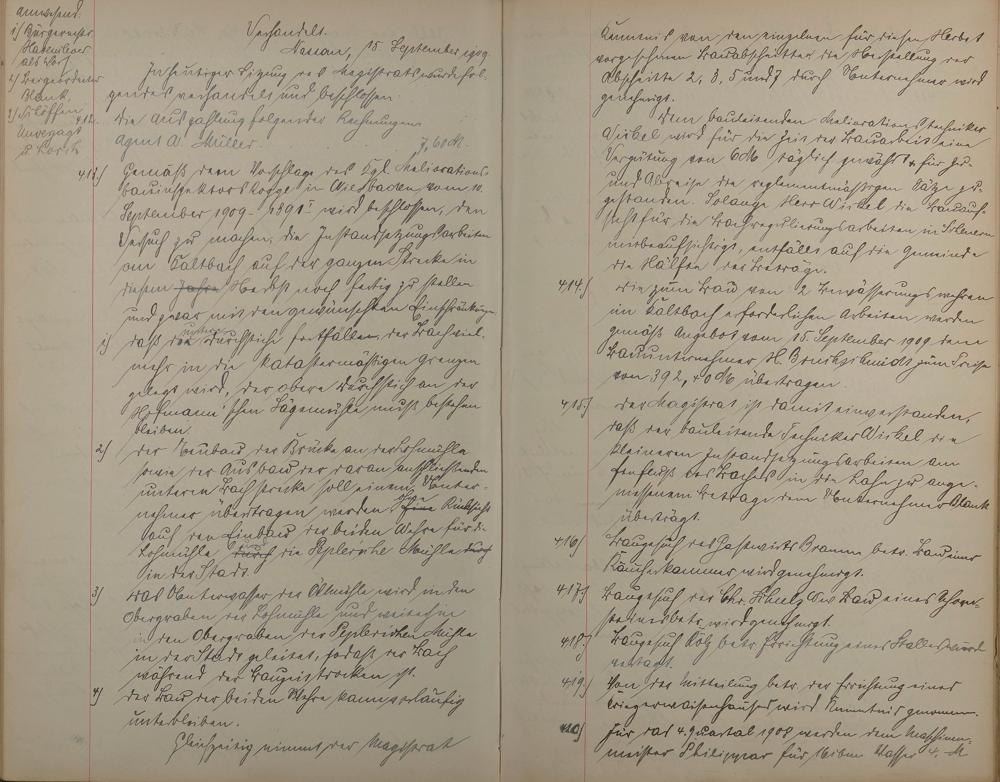 anwesend:
1) Bürgermstr.
Hasenclever
als Vors.
2) Beigeordneter
Blank,
3) Schöffen
Unverzagt
u. Horch
Verhandelt.
Nassau, 15. September 1909.
In heutiger Sitzung des Magistrats wurde fol-
gendes verhandelt und beschlossen.
412.
die Auszahlung folgender Rechnungen
Agent A. Müller 7,60 M.
413.) Gemäß dem Vorschlage des Kgl. Meliorations-
bauinspektors Rogge in Wiesbaden vom 10.
September 1909 - 4891 I wird beschlossen, den
Versuch zu machen, die Instandsetzungsarbeiten
am Kaltbach auf der ganzen Strecke in
diesem Jahre Herbst noch fertig zu stellen
und zwar mit den gewünschten Einschränkungen
1) daß die untere Durchstiche fortfallen, der Bach viel-
mehr in die katastermäßigen Grenzen
gelegt wird, der obere Durchstich an der
Hofmann'schen Sägemühle muß bestehen
bleiben.
2) der Neubau der Brücke an der Lohmühle
sowie der Ausbau der daran anschließenden
unteren Bachstrecke soll einem Unter-
nehmer übertragen werden ohne Rücksicht
auf den Einbau der beiden Wehre für die
Lohmühle durch die Mühle durch
in der Stadt.
3) das Unterwasser der Ölmühle wird in den
Obergraben der Lohmühle und weiterhin
in den Obergraben der Mühle
in der Stadt geleitet, sodaß der Bach
während der Bauzeit trocken ist.
4) der Bau der beiden Wehre kann vorläufig
unterbleiben.
Gleichzeitig nimmt der Magistrat
Kenntnis von den einzelnen für diesen Herbst
vorgesehenen Bauabschnitten die Herstellung der
Abschnitte 2, 3, 5 und 7 durch Unternehmer wird
genehmigt.
Dem bauleitenden Meliorationstechniker
Wirbel wird für die Zeit der Bauarbeit eine
Vergütung von 6 M täglich gewährt, für Zu-
und Abreise die reglementmäßigen Sätze zu-
gestanden. Solange Herr Wirbel die Bauauf-
sicht für die Bachregulierungsarbeiten in
mitbeaufsichtigt, entfällt auf die Gemeinde
die Hälfte der Beträge.
414.) die zum Bau von 2 Bewässerungswehren
im Kaltbach erforderlichen Arbeiten werden
gemäß Angebot vom 15. September 1909 dem
Bauunternehmer H. Bruchschmidt zum Preise
von 392,40 M übertragen.
415.) der Magistrat ist damit einverstanden,
daß der bauleitende Techniker Wirbel die
kleineren Instandsetzungsarbeiten am
Einfluß des Baches in die Lahn zu ange-
messenem Betrage dem Unternehmer Blank
überträgt.
416.) Baugesuch des Gastwirts Bramm betr. Bau einer
Räucherkammer wird genehmigt.
417.) Baugesuch des Chr. Schulz den Bau eines Schorn-
steines betr. wird genehmigt.
418.) Baugesuch Kolb betr. Errichtung eines Stalles wird
vertagt.
419.) Von der Mitteilung betr. der Errichtung eines
Kriegerwaisenhauses wird Kenntnis genommen.
420.) Für das 4. Quartal 1908 werden dem Maschinen-
meister Philippar für Wasser 4. M